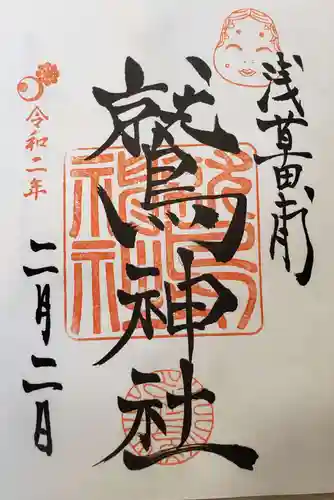 浅草田甫
鷲神社
令和二年
二月二日